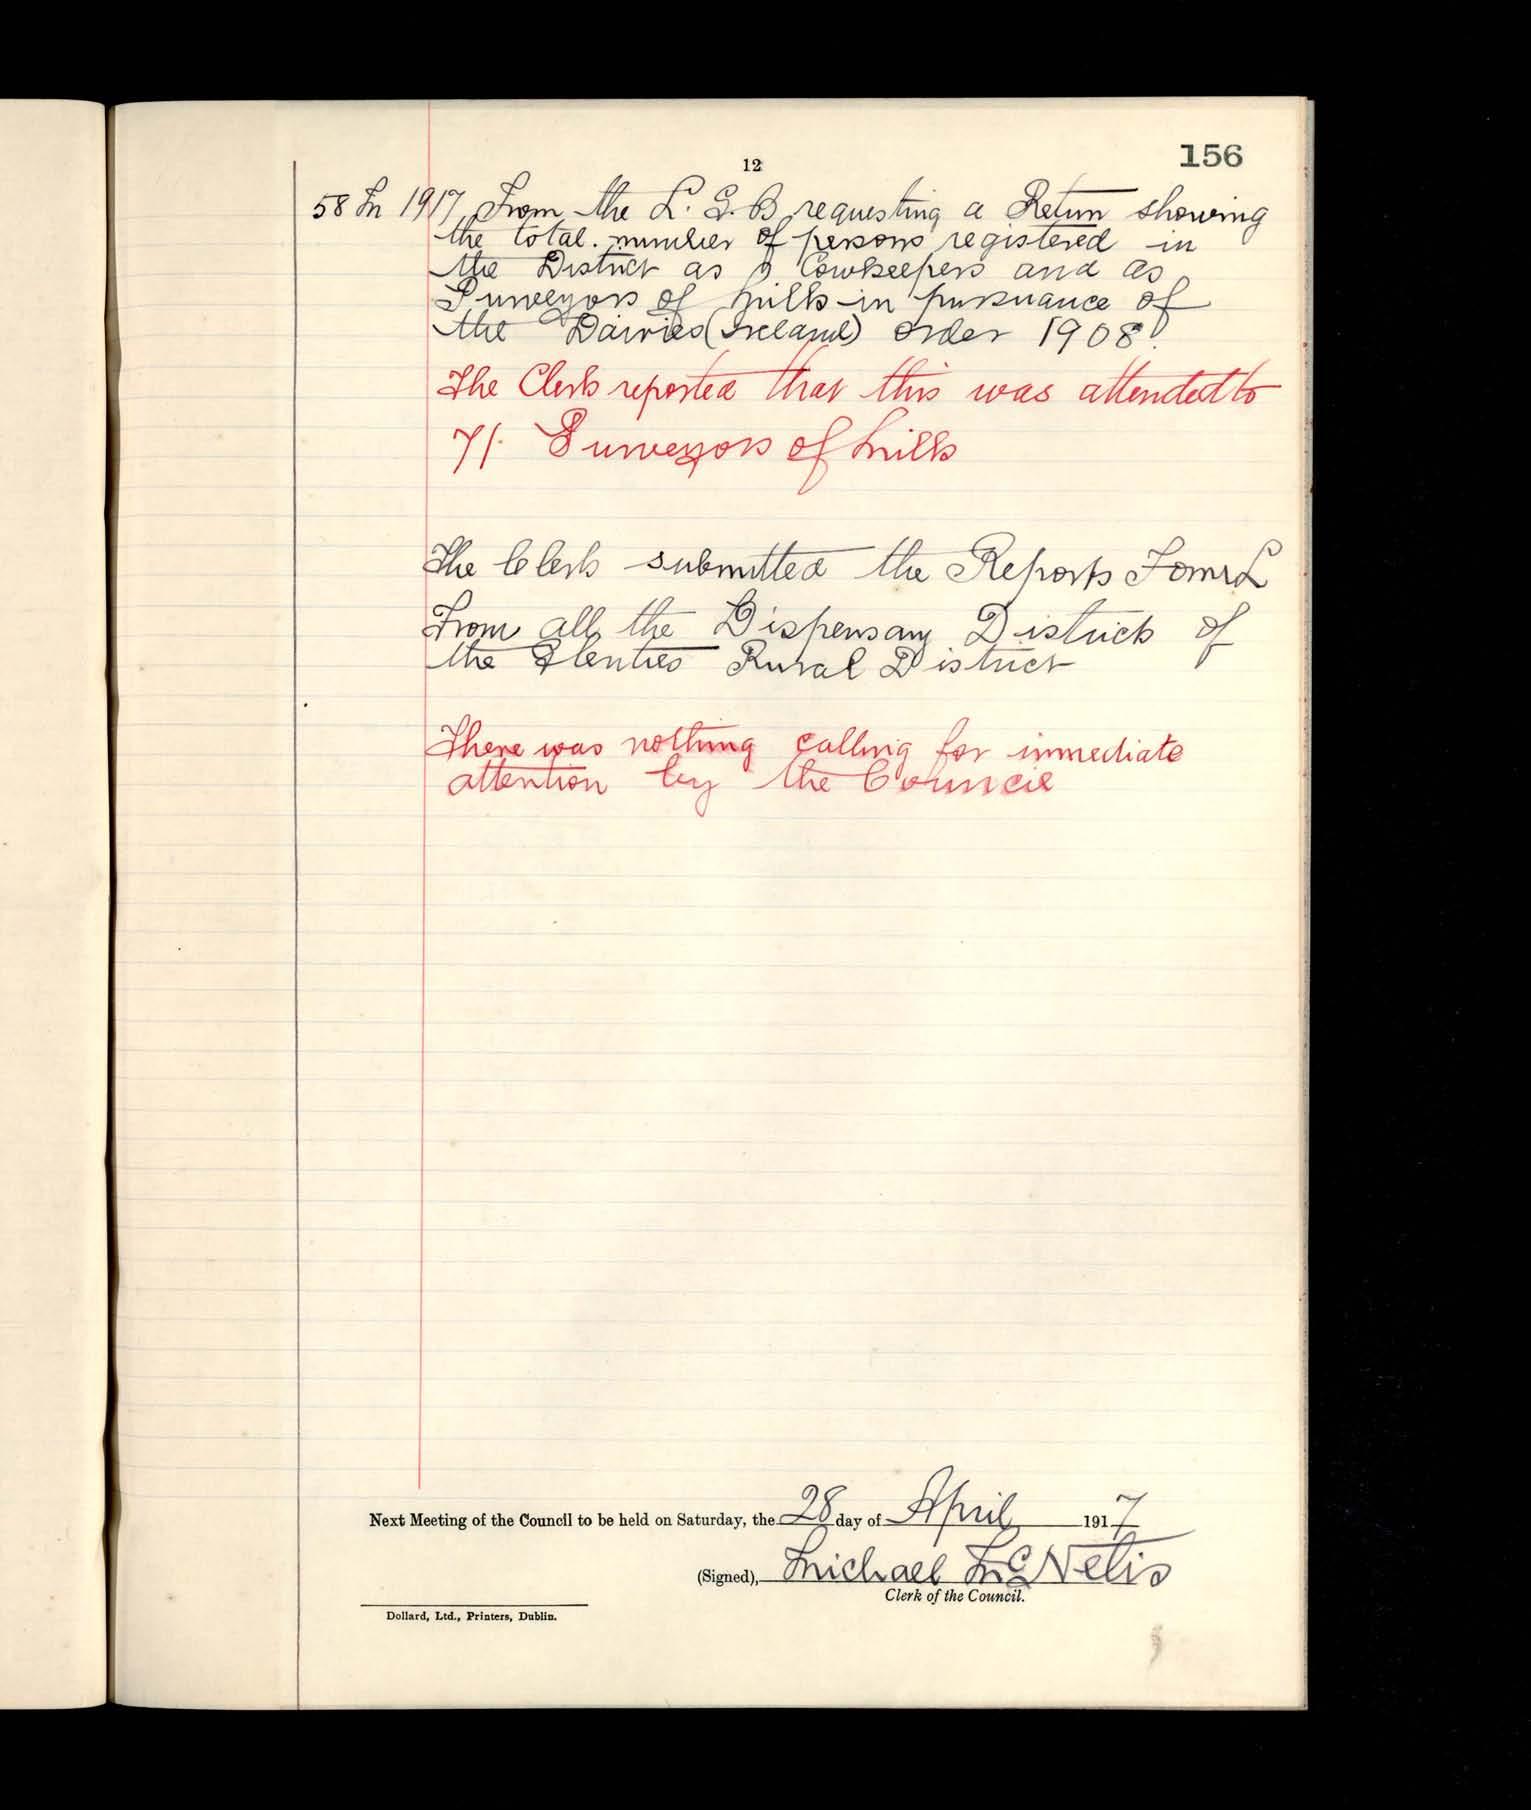 156
12
58 M 1917 From the L. G. B requesting a Return showing
the total number of persons registered in
the District as Cowkeepers and as
Purveyors of Milk in pursuance of
the Dairies (Ireland) order 1908
The Clerk reported that this was attended to
71. Purveyors of Milk
The Clerk submitted the Reports Form L
From all the Dispensary Districts of
the Glenties Rural District
There was nothing calling for immediate
attention by the Council
Next Meeting of the Council to be held on Saturday, the 28 day of April 1917
(Signed), Michael McNelis
Clerk of the Council.
Dollard, Ltd., Printers, Dublin.